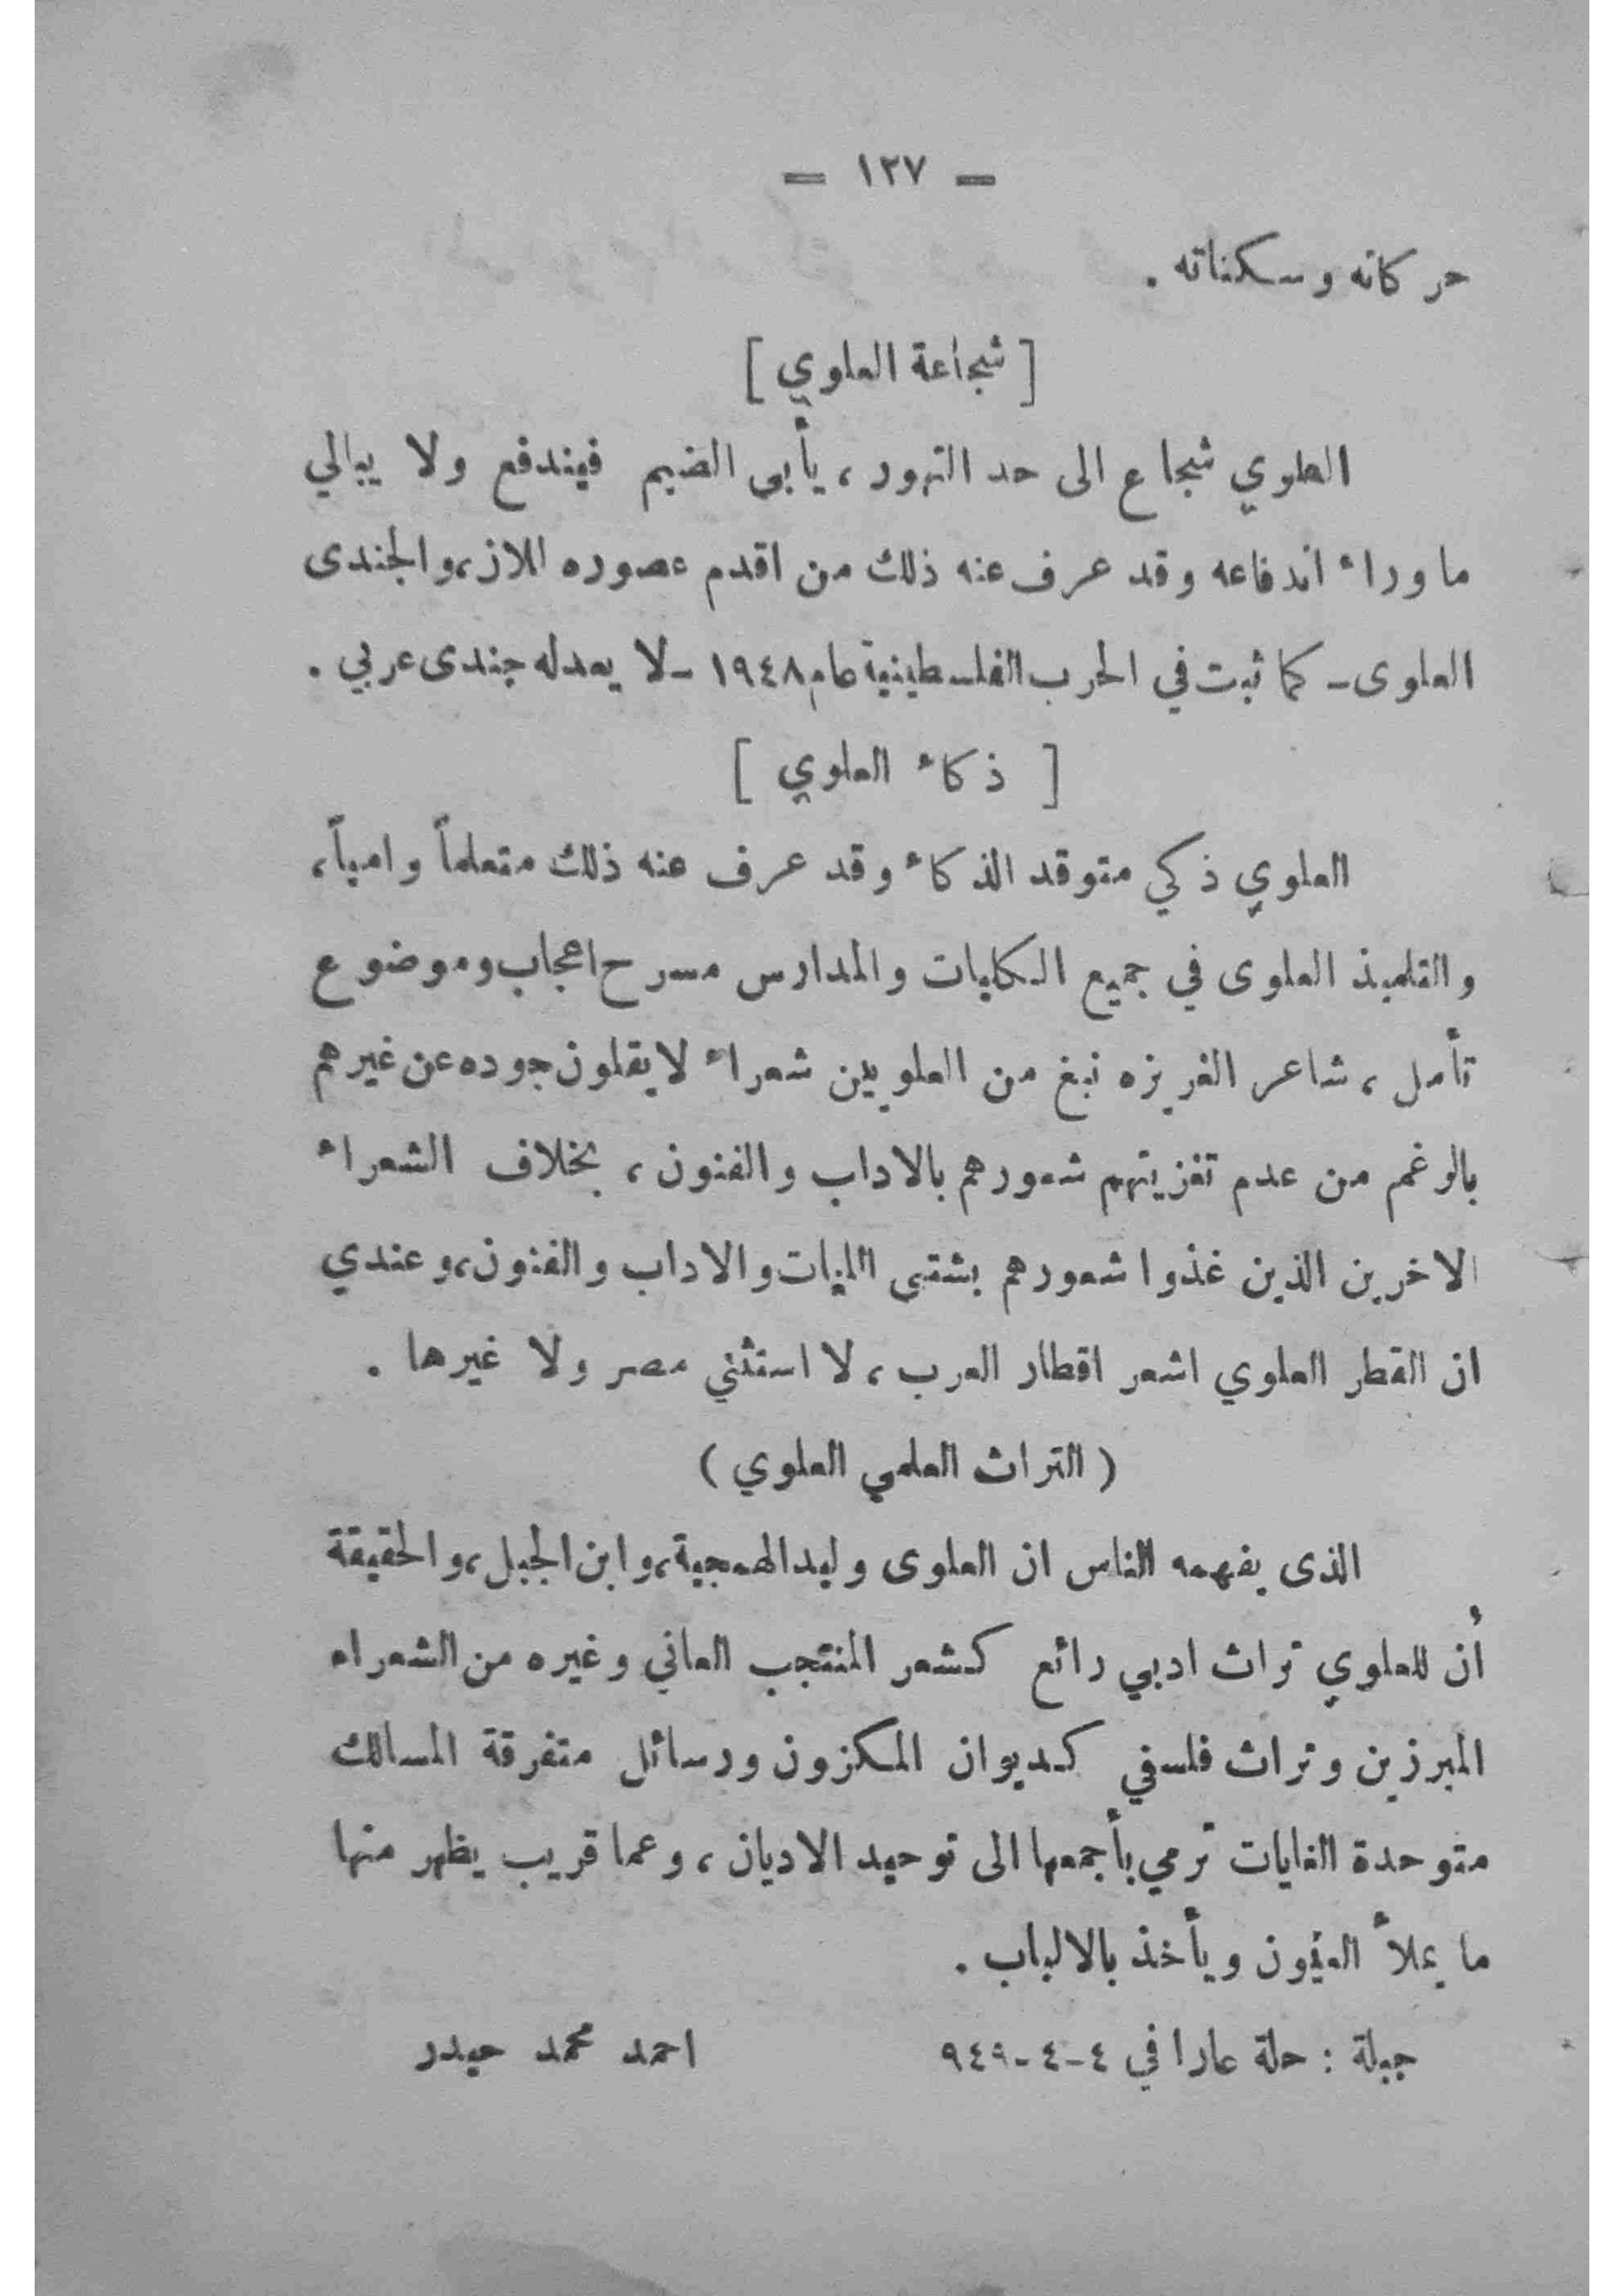 — ١٢٧ —
حركاته وسكناته .
[ شجاعة العلوي ]
العلوي شجاع الى حد التهور ، يأبى الضيم فيندفع ولا يبالي
ما وراء اندفاعه وقد عرف عنه ذلك من اقدم عصوره للان، والجندى
العلوى ـ كما ثبت في الحرب الفلسطينية عام ١٩٤٨ ـ لا يعدله جندى عربي .
[ ذكاء العلوي ]
العلوي ذكي متوقد الذكاء وقد عرف عنه ذلك متعلماً وامياً ،
والتلميذ العلوى في جميع الكليات والمدارس مسرح اعجاب وموضوع
تأمل ، شاعر الغريزه نبغ من العلويين شعراء لا يقلون جوده عن غيرهم
بالرغم من عدم تغزيتهم شعورهم بالاداب والفنون ، بخلاف الشعراء
الاخرين الذين غذوا شعورهم بشتى اللغات والاداب والفنون، وعندي
ان القطر العلوي اشعر اقطار العرب ، لا استثني مصر ولا غيرها .
( التراث العلمي العلوي )
الذى يفهمه الناس ان العلوى وليد الهمجية، وابن الجبل ، والحقيقة
أن للعلوي تراث ادبي رائع كشعر المنتجب العاني وغيره من الشعراء
المبرزين وتراث فلسفي كديوان المكزون ورسائل متفرقة المسالك
متوحدة الغايات ترمي بأجمعها الى توحيد الاديان ، وعما قريب يظهر منها
ما يملأ العيون ويأخذ بالالباب .
جبلة : حلة عارا في ٤-٤-٩٤٩ احمد محمد حيدر